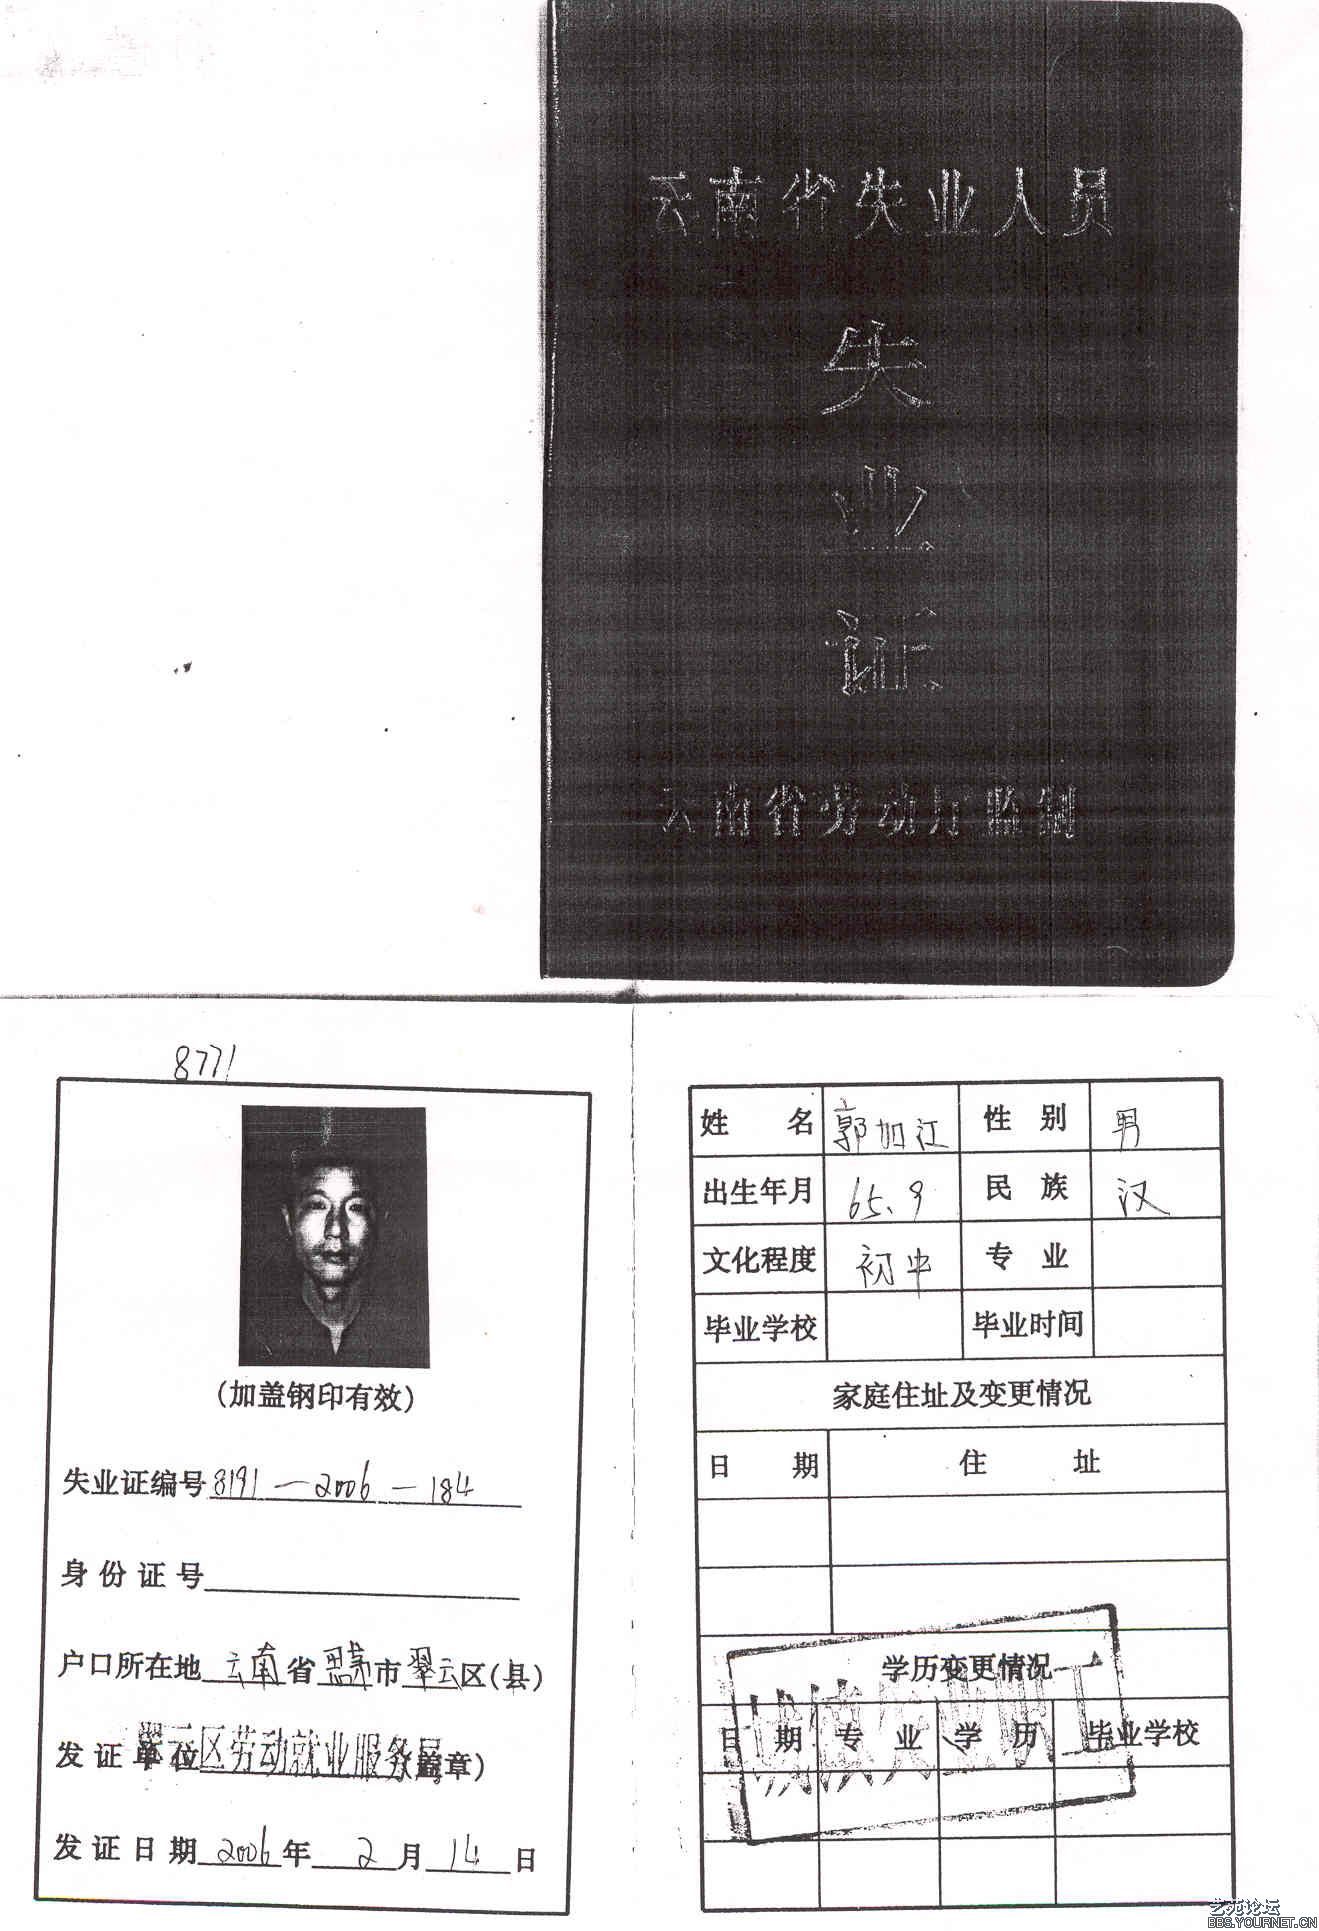 云南省失业人员
失
业
证
云南省劳动厅监制
8771
(加盖钢印有效)
失业证编号 8191—2006—184
身份证号
户口所在地 云南 省 思茅 市 翠云 区(县)
发证单位 翠云区劳动就业服务局 (盖章)
发证日期 2006 年 2 月 14 日
姓名 郭加江 性别 男
出生年月 65.9 民族 汉
文化程度 初中 专业
毕业学校 毕业时间
家庭住址及变更情况
日期 住址
学历变更情况
日期 专业 学历 毕业学校
艺苑论坛
BBS.YOURNET.CN